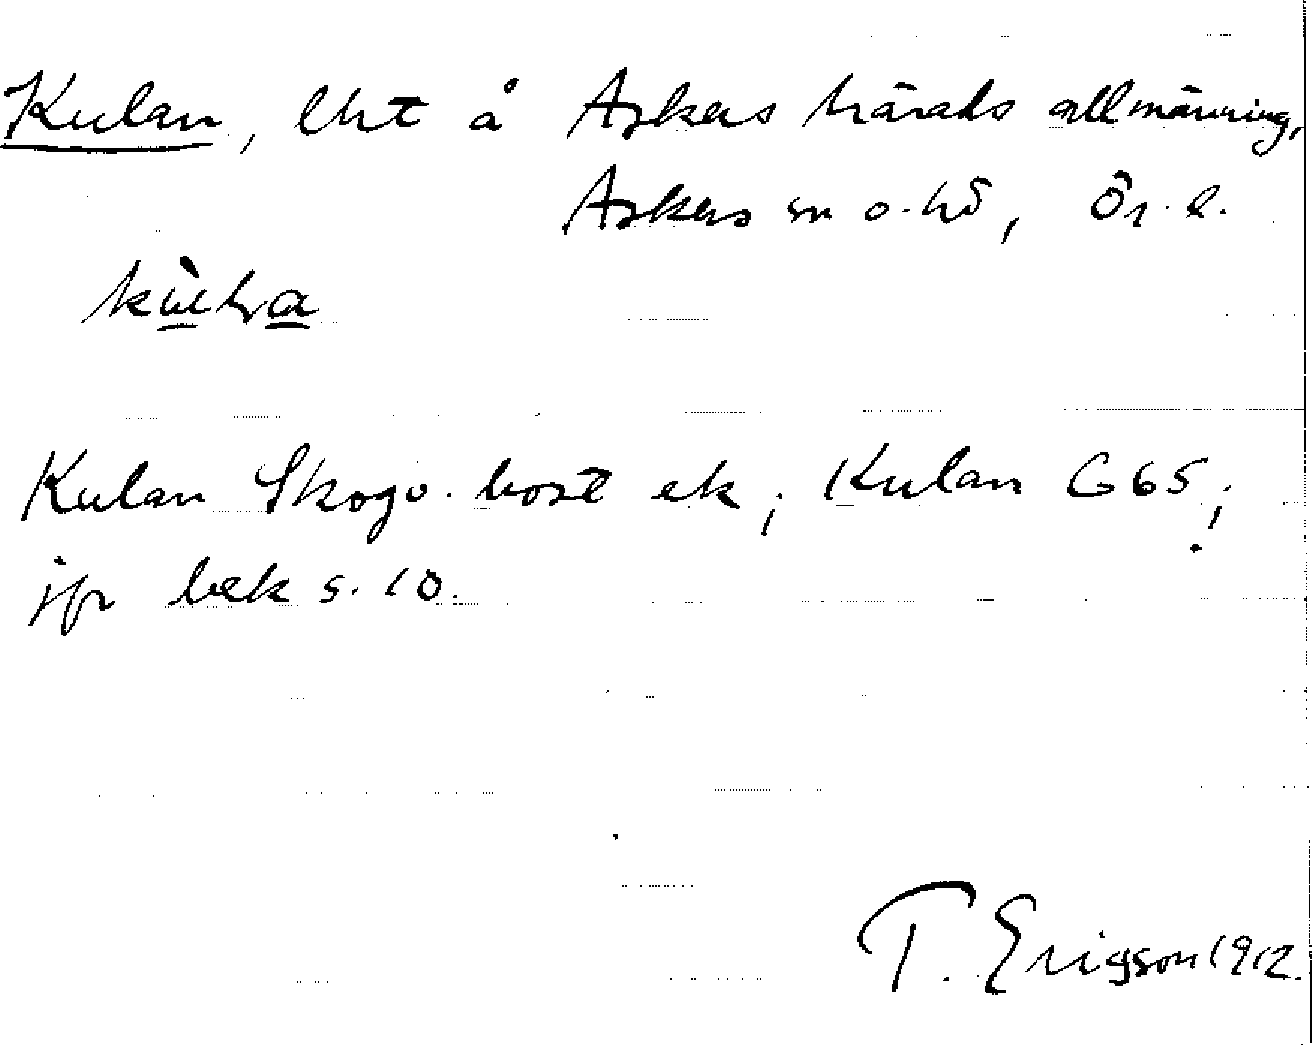 Kulan, lht å Askers härads allmänning,
Askers sn o. hd, Ör. l.
Kulan Skogv. bost ek; Kulan G65;
jfr bek s. 10.
T. Ericsson 1912.